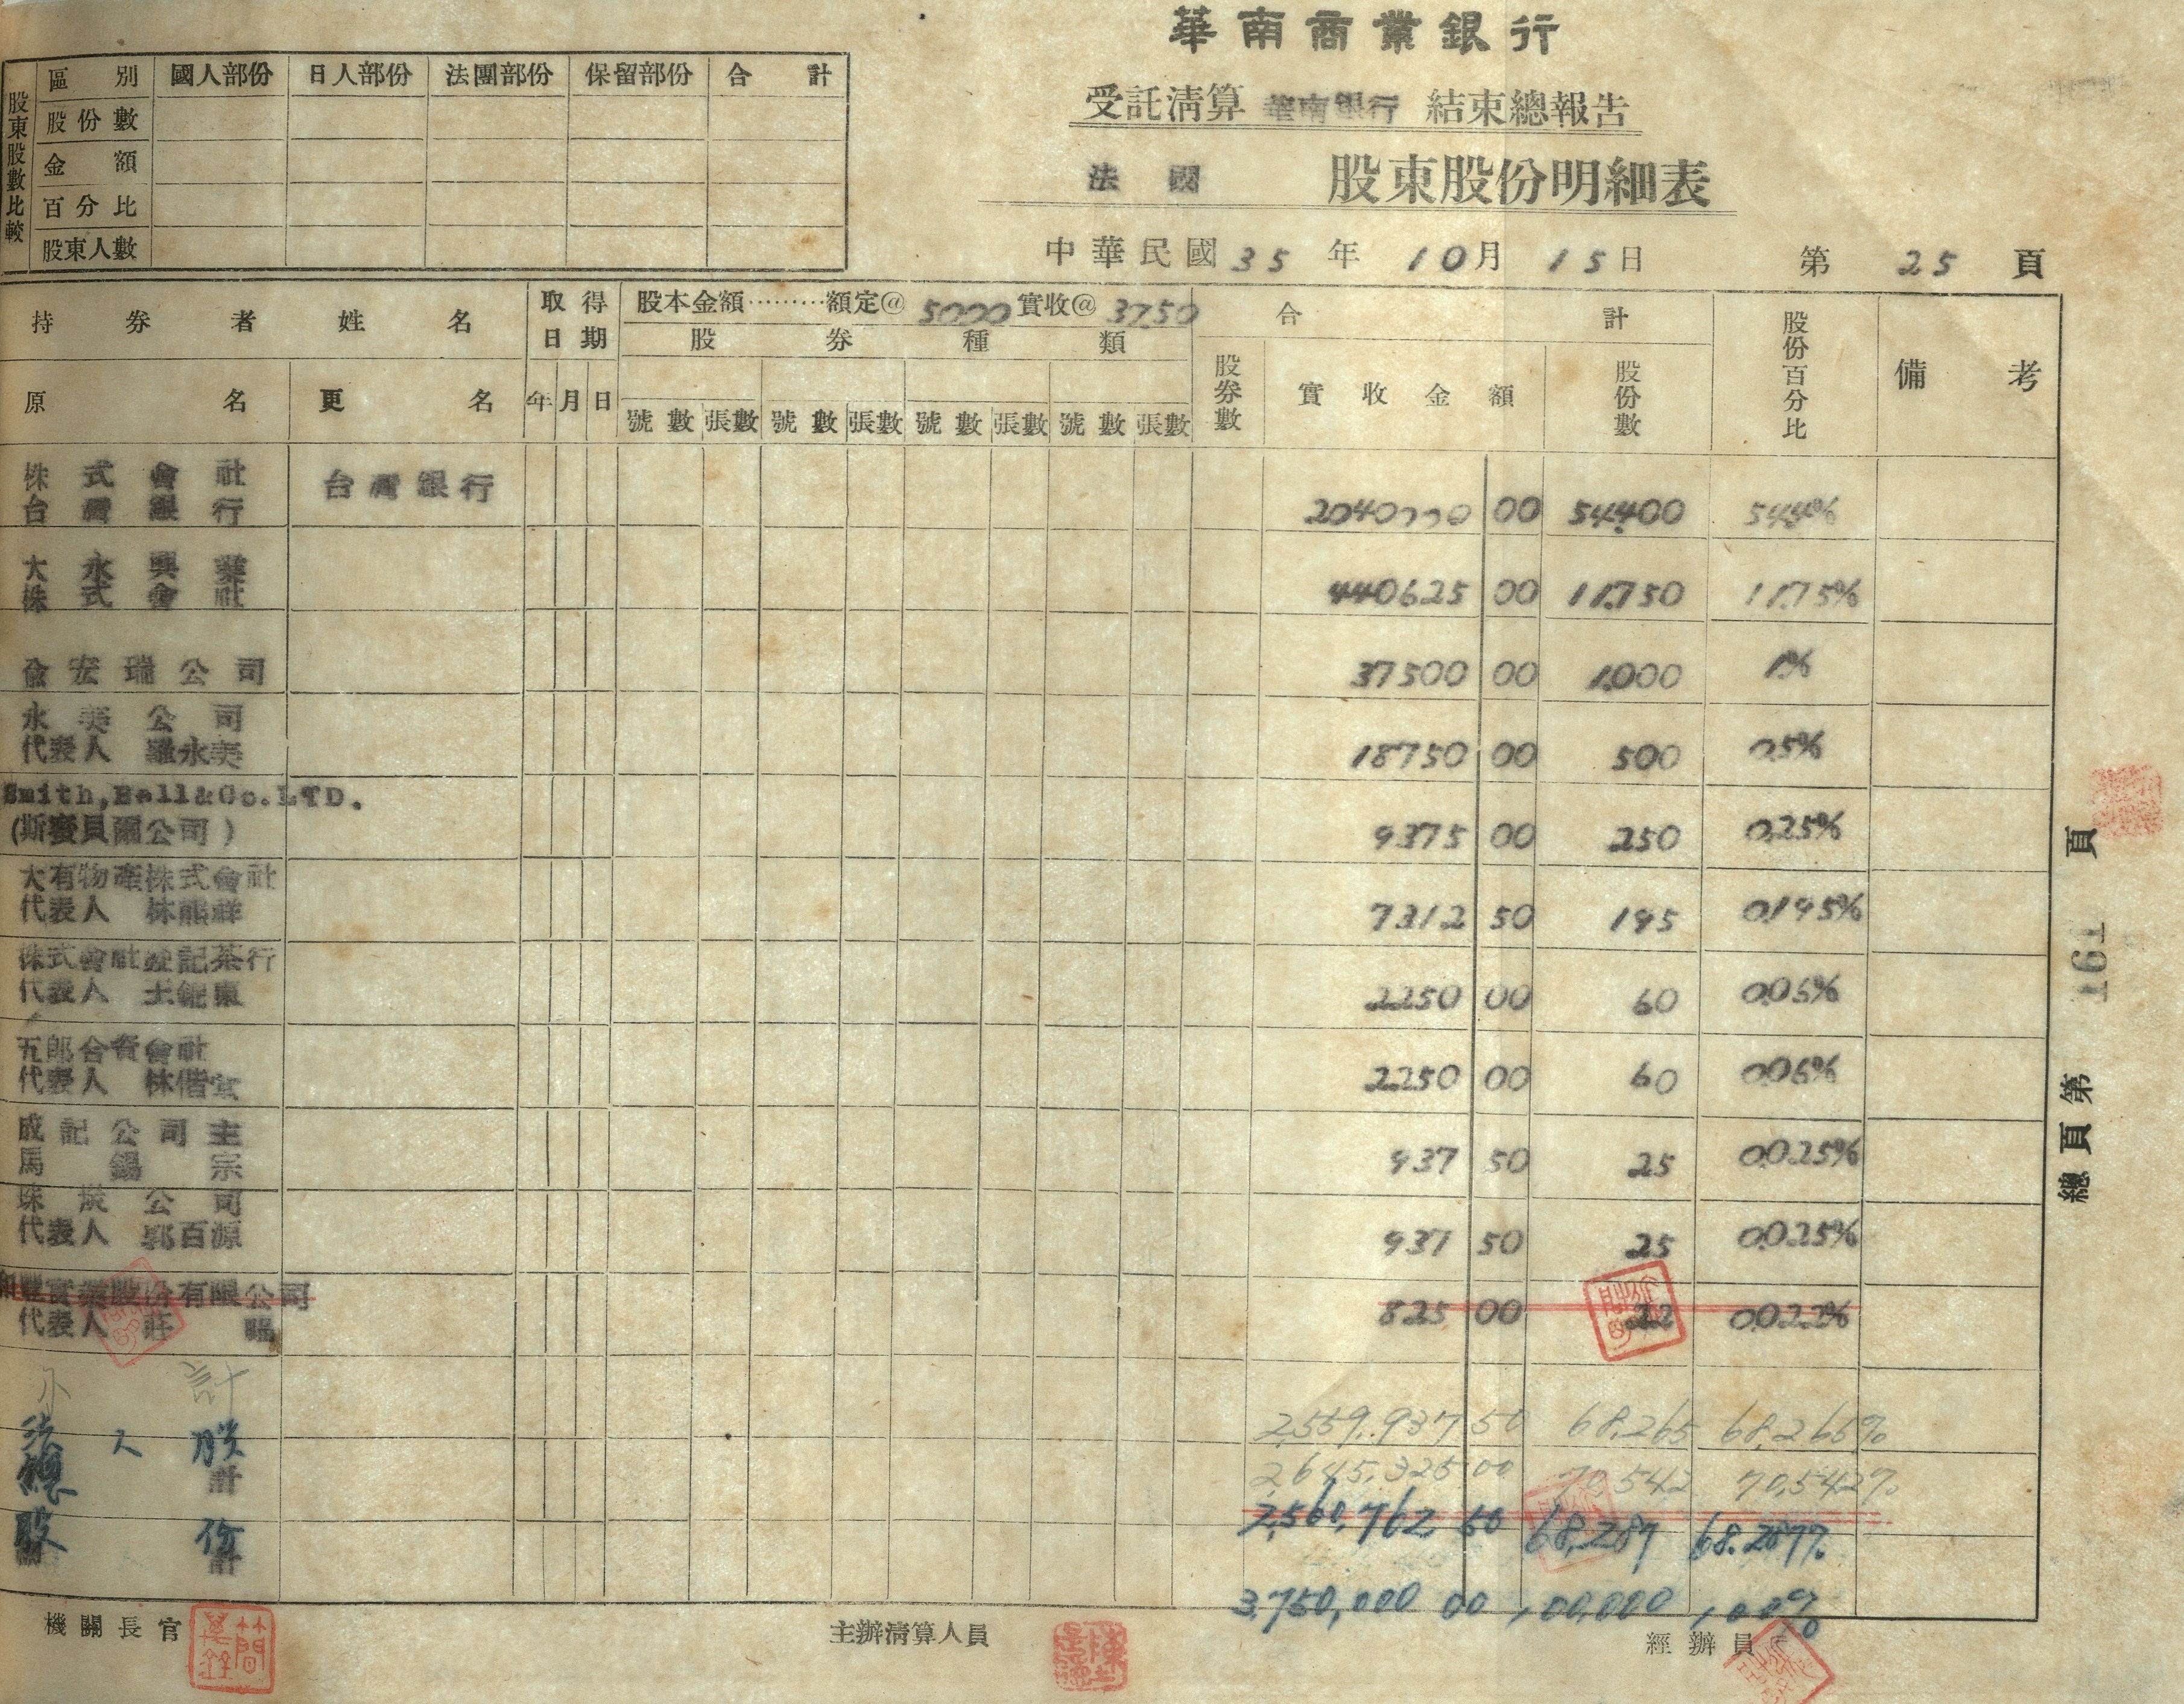 華南商業銀行
受託清算 華南銀行 結束總報告
法團 股東股份明細表
中華民國 35 年 10 月 15 日 第 25 頁
股東股數比較
區別 國人部份 日人部份 法團部份 保留部份 合計
股份數
金額
百分比
股東人數
持券者姓名 取得日期 股本金額………額定@ 5000 實收@ 3750 合計 股份百分比 備考
股券種類
原名 更名 年 月 日 號數 張數 號數 張數 號數 張數 號數 張數 股券數 實收金額 股份數
株式會社
台灣銀行 台灣銀行 2040000 00 54.400 54.4%
大永興業
株式會社 440625 00 11.750 11.75%
俞宏瑞公司 37500 00 1.000 1%
永美公司
代表人 羅永美 18750 00 500 0.5%
Smith,Bell&Co.LTD.
(斯蜜貝爾公司) 9375 00 250 0.25%
大有物產株式會社
代表人 林熊祥 7312 50 195 0.195%
株式會社 記茶行
代表人 王 東 2250 00 60 0.06%
五郎合資會社
代表人 林 2250 00 60 0.06%
成記公司主
馬錫宗 937 50 25 0.025%
公司
代表人 郭百源 937 50 25 0.025%
和豐實業股份有限公司
代表人 莊 825 00 22 0.022%
小計 2,559,937 50 68,265 68,265%
法人股 2,645,325 00 70,542 70,542%
總計 2,560,762 50 68,287 68.287%
股份計 3,750,000 00 100,000 100%
機關長官 主辦清算人員 經辦員
總頁第 頁